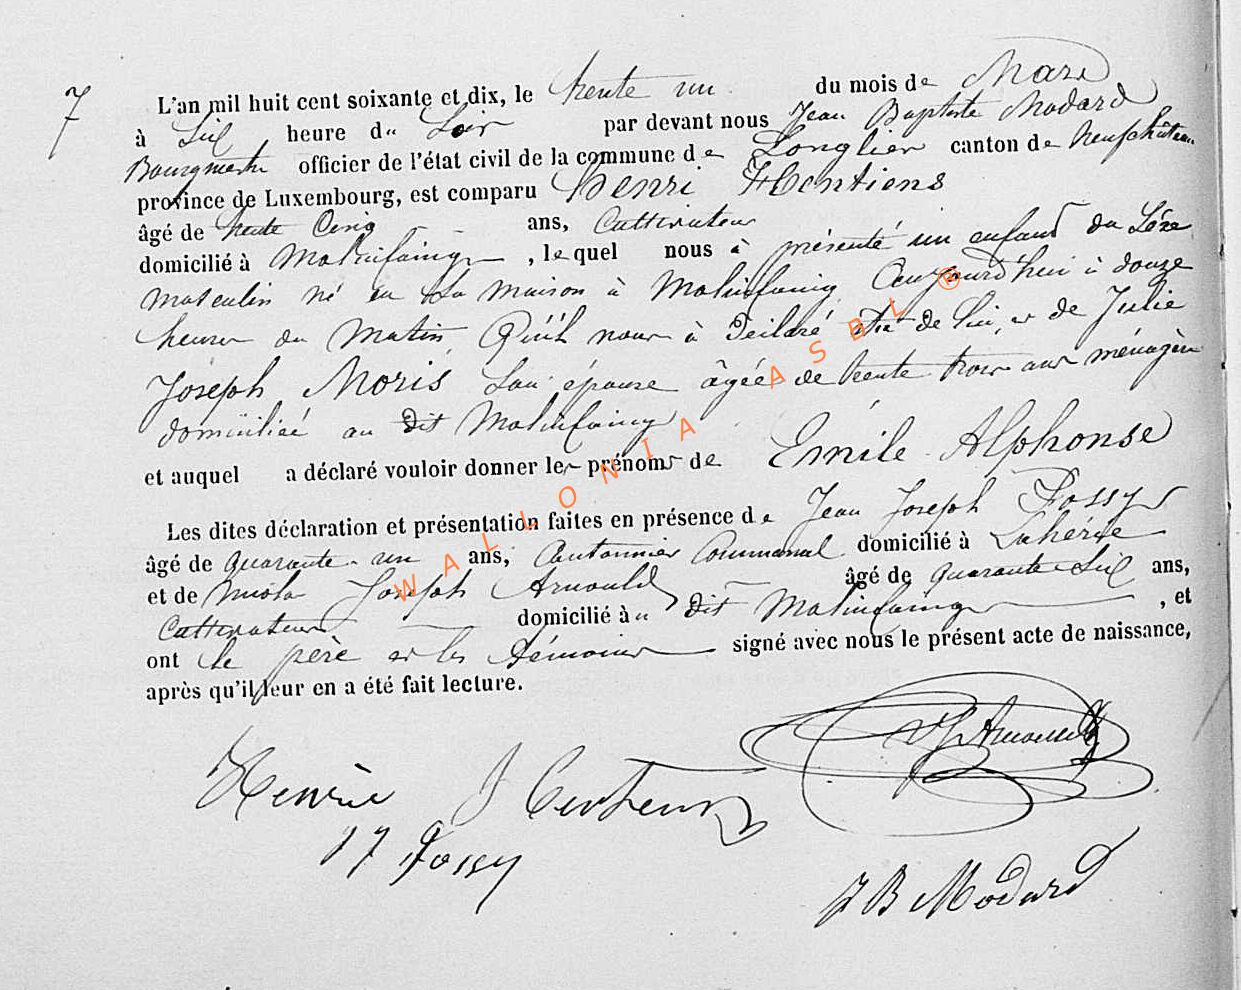 7
L'an mil huit cent soixante et dix, le trente un du mois de Mars
à Six heure du Soir par devant nous Jean Baptiste Modard
Bourgmestre officier de l'état civil de la commune de Longlier canton de Neufchâteau
province de Luxembourg, est comparu Henri Hentiens
âgé de trente Cinq ans, Cultivateur
domicilié à Molinfaing, lequel nous à présenté un enfant du Séxe
masculin né en Sa maison à Molinfaing Ceujourd'hui à douze
heures du Matin, Qu'il nous à Déclaré être de lui, et de Julie
Joseph Moris Son épouse âgée de trente trois ans ménagère
domiciliée au dit Molinfaing
et auquel a déclaré vouloir donner les prénoms de Emile Alphonse
Les dites déclaration et présentation faites en présence de Jean Joseph Fossy
âgé de quarante un ans, Cantonnier Communal domicilié à Lahérie
et de Joseph Arnould âgé de quarante Six ans,
Cultivateur domicilié à dit Molinfaing, et
ont le père et les témoins signé avec nous le présent acte de naissance,
après qu'il leur en a été fait lecture.
WALLONIA ASBL ®
J Arnould
Henrie
J Fossy
J B Modard